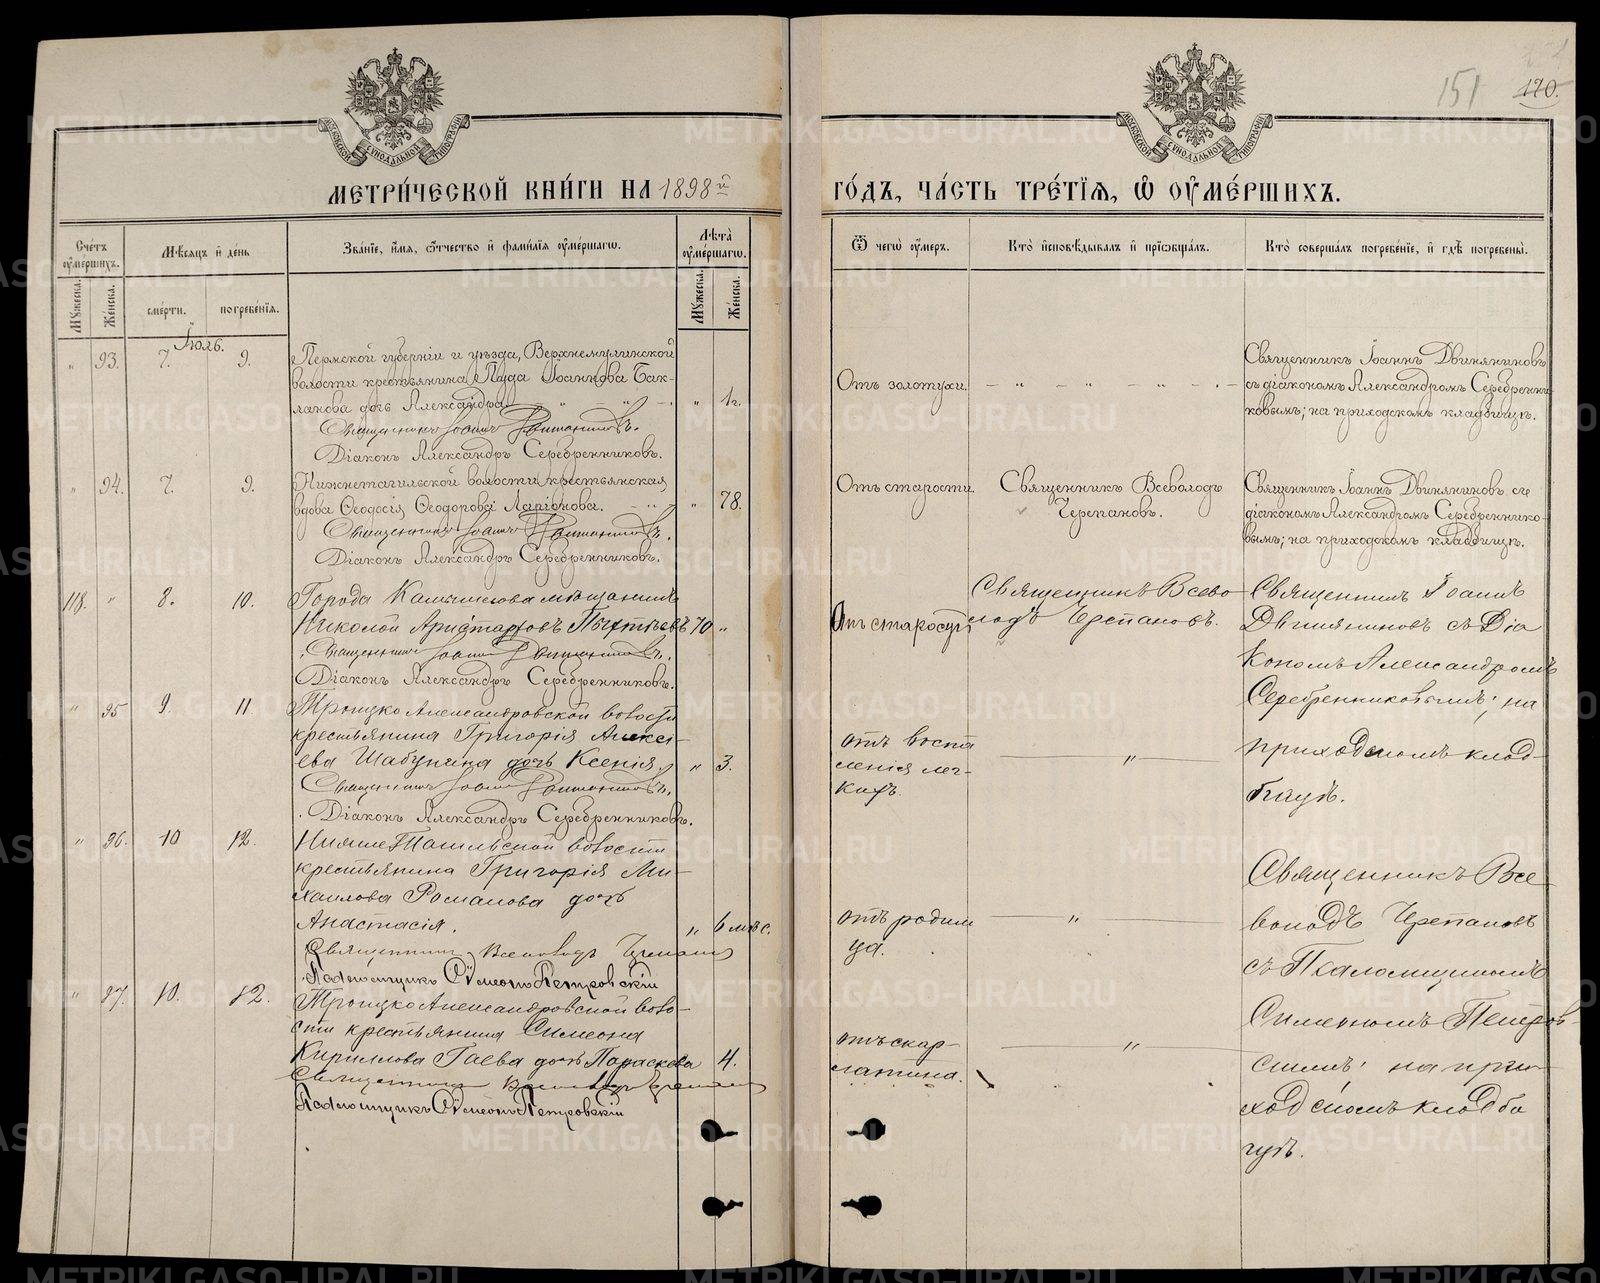 151 170.
МОСКОВСКОЙ СУНОДАЛЬНОЙ ТИПОГРАФІИ
МОСКОВСКОЙ СУНОДАЛЬНОЙ ТИПОГРАФІИ
МЕТРИ́ЧЕСКОЙ КНИ́ГИ НА 1898й
ГО́ДЪ, ЧА́СТЬ ТРЕ́ТІѦ, Ѡ ОУМЕ́РШИХЪ.
Счетъ оумершихъ.
Мужеска.
Женска.
Мѣсяцъ и день
смерти.
погребенія.
Званіе, имя, отчество и фамилія оумершагѡ.
Лѣта оумершагѡ.
Мужеска.
Женска.
Ѿ чегѡ оумеръ.
Кто исповѣдывалъ и пріобщалъ.
Кто совершалъ погребеніе, и гдѣ погребены.
Іюль.
" 93. 7. 9.
Пермской губерніи и уѣзда, Верхнемуллинской
волости крестьянина Іуда Іоаннова Бак-
ланова дочь Александра " 1 г.
Священникъ Іоаннъ Двиняниновъ.
Діаконъ Александръ Серебренниковъ.
Отъ золотухи.
Священникъ Іоаннъ Двиняниновъ
съ діакономъ Александромъ Серебренни-
ковымъ; на приходскомъ кладбищѣ.
" 94. 7. 9.
Нижнетагильской волости крестьянская
вдова Ѳеодосія Ѳеодорова Ларіонова. " 78.
Священникъ Іоаннъ Двиняниновъ.
Діаконъ Александръ Серебренниковъ.
Отъ старости.
Священникъ Всеволодъ
Черепановъ.
Священникъ Іоаннъ Двиняниновъ съ
діакономъ Александромъ Серебреннико-
вымъ; на приходскомъ кладбищѣ.
118. " 8. 10.
Города Камышлова мѣщанинъ
Николай Аристарховъ 70 "
Священникъ Іоаннъ Двиняниновъ.
Діаконъ Александръ Серебренниковъ.
Отъ старости
Священникъ Всево
лодъ Черепановъ.
Священникъ Іоаннъ
Двиняниновъ съ Діа
кономъ Александромъ
Серебренниковымъ; на
приходскомъ клад-
бищѣ.
" 95 9. 11.
Троицко Александровской волости
крестьянина Григорія Алексі-
ева Шабунина дочь Ксенія. " 3.
Священникъ Іоаннъ Двиняниновъ.
Діаконъ Александръ Серебренниковъ.
отъ воспа
ленія лег-
кихъ.
"
" 96. 10 12.
Нижне Тагильской волости
крестьянина Григорія Ми-
хаилова Романова дочь
Анастасія. " 6 мѣс.
Священникъ Всеволодъ Черепановъ
Псаломщикъ Сѵмеонъ Петровскій
отъ родим
ца.
"
Священникъ Все
володъ Черепановъ
съ Псаломщикомъ
Симеономъ Петров-
скимъ; на при-
ходскомъ кладби
щѣ.
" 97. 10. 12.
Троицко Александровской воло-
сти крестьянина Симеона
Кириллова Гаева дочь Параскева 4.
Священникъ Всеволодъ Черепановъ
Псаломщикъ Сѵмеонъ Петровскій
отъ скар-
латина.
"
METRIKI.GASO-URAL.RU